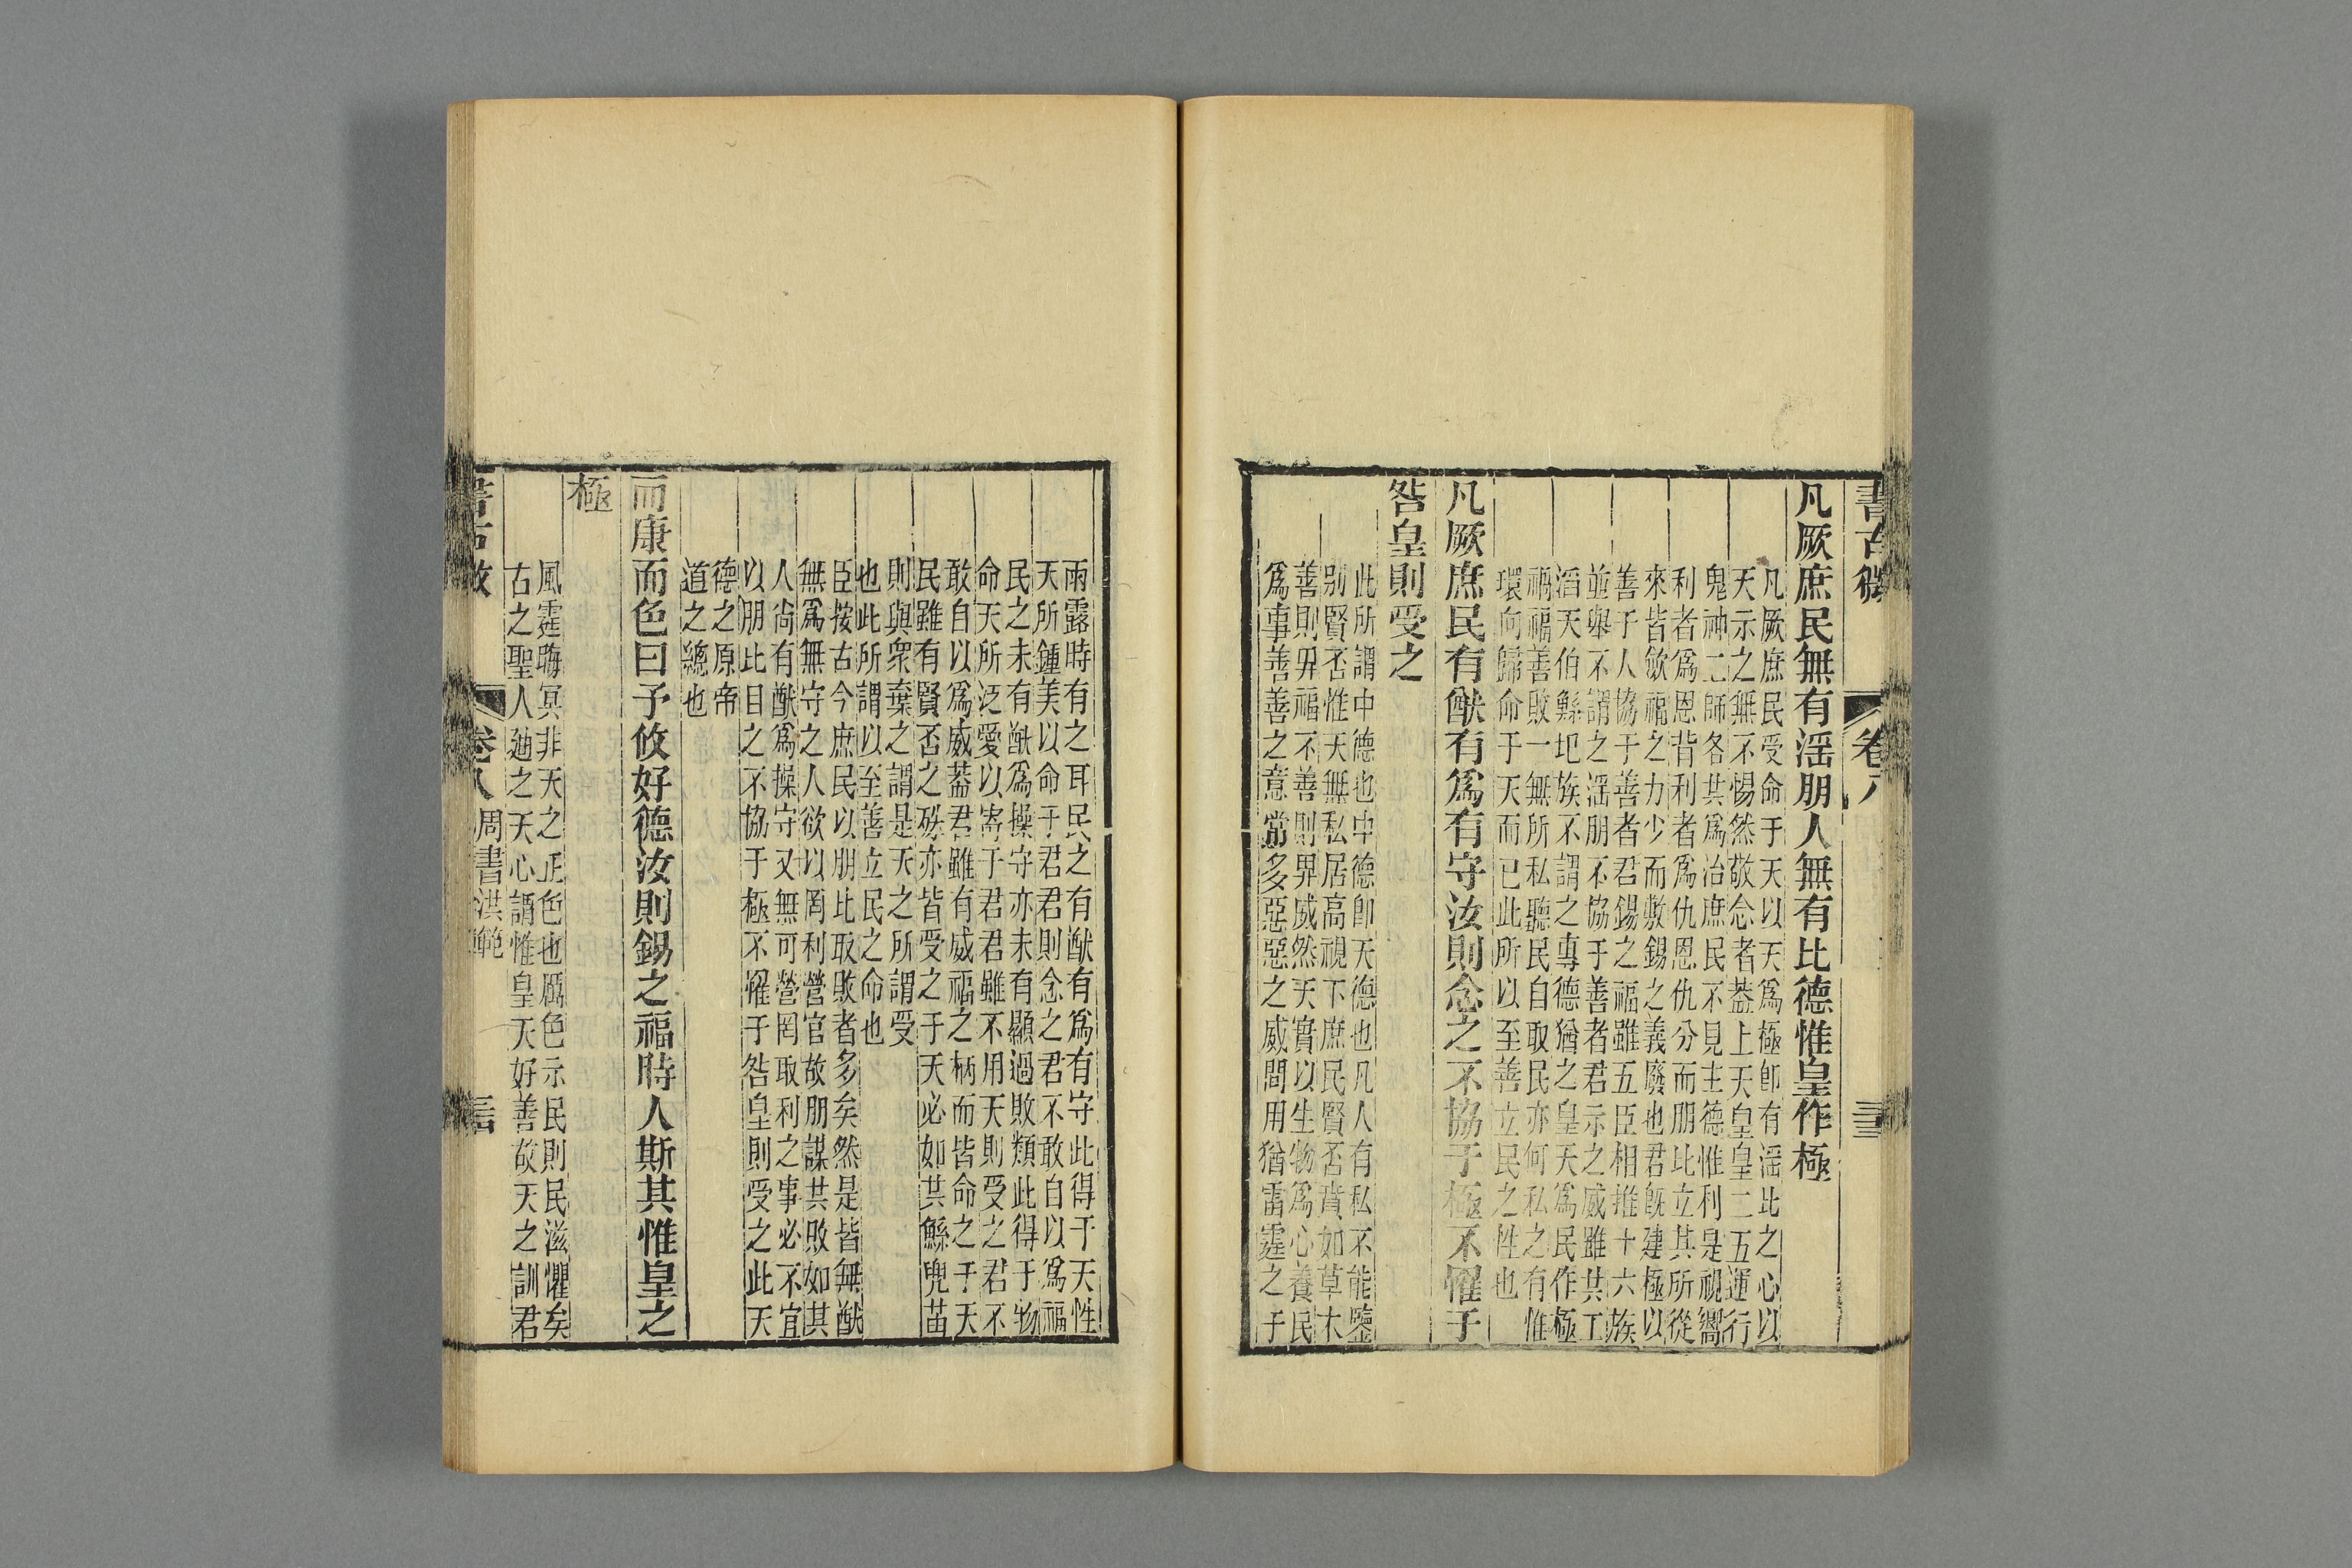 書古微
卷八
凡厥庶民無有淫朋人無有比德惟皇作極
凡厥庶民受命于天以天爲極卽有淫比之心以
天示之無不惕然敬念者葢上天皇皇二五運行
鬼神二師各其爲治庶民不見主德惟利是視嚮
利者爲恩背利者爲仇恩仇分而朋比立其所從
來皆歛福之力少而敷錫之義廢也君旣建極以
善子人協于善者君錫之福雖五臣相推十六族
並舉不謂之淫朋不協于善者君示之威雖共工
滔天伯鯀圯族不謂之專德猶之皇天爲民作極
禍福善敗一無所私聽民自取民亦何私之有惟
環向歸命于天而已此所以至善立民之性也
凡厥庶民有猷有爲有守汝則念之不協于極不罹于
咎皇則受之
此所謂中德也中德卽天德也凡人有私不能鑒
别賢否惟天無私居高視下庶民賢否賁如草木
善則畀福不善則畀威然天實以生物爲心養民
爲事善善之意常多惡惡之威間用猶雷霆之于
雨露時有之耳民之有猷有爲有守此得于天性
天所鍾美以命于君君則念之君不敢自以爲福
民之未有猷爲操守亦未有顯過敗類此得于物
命天所泛愛以寄于君君雖不用天則受之君不
敢自以爲威葢君雖有威福之柄而皆命之于天
民雖有賢否之殊亦皆受之于天必如其鯀兜苗
則與衆棄之謂是天之所謂受
也此所謂以至善立民之命也
臣按古今庶民以朋比取敗者多矣然是皆無猷
無爲無守之人欲以罔利營官故朋謀共敗如其
人尙有猷爲操守又無可營罔取利之事必不宜
以朋比目之不協于極不罹于咎皇則受之此天
德之原帝
道之總也
而康而色曰予攸好德汝則錫之福時人斯其惟皇之
極
風霆晦冥非天之正色也厲色示民則民滋懼矣
古之聖人廸之天心謂惟皇天好善故天之訓君
卷八
周書洪範